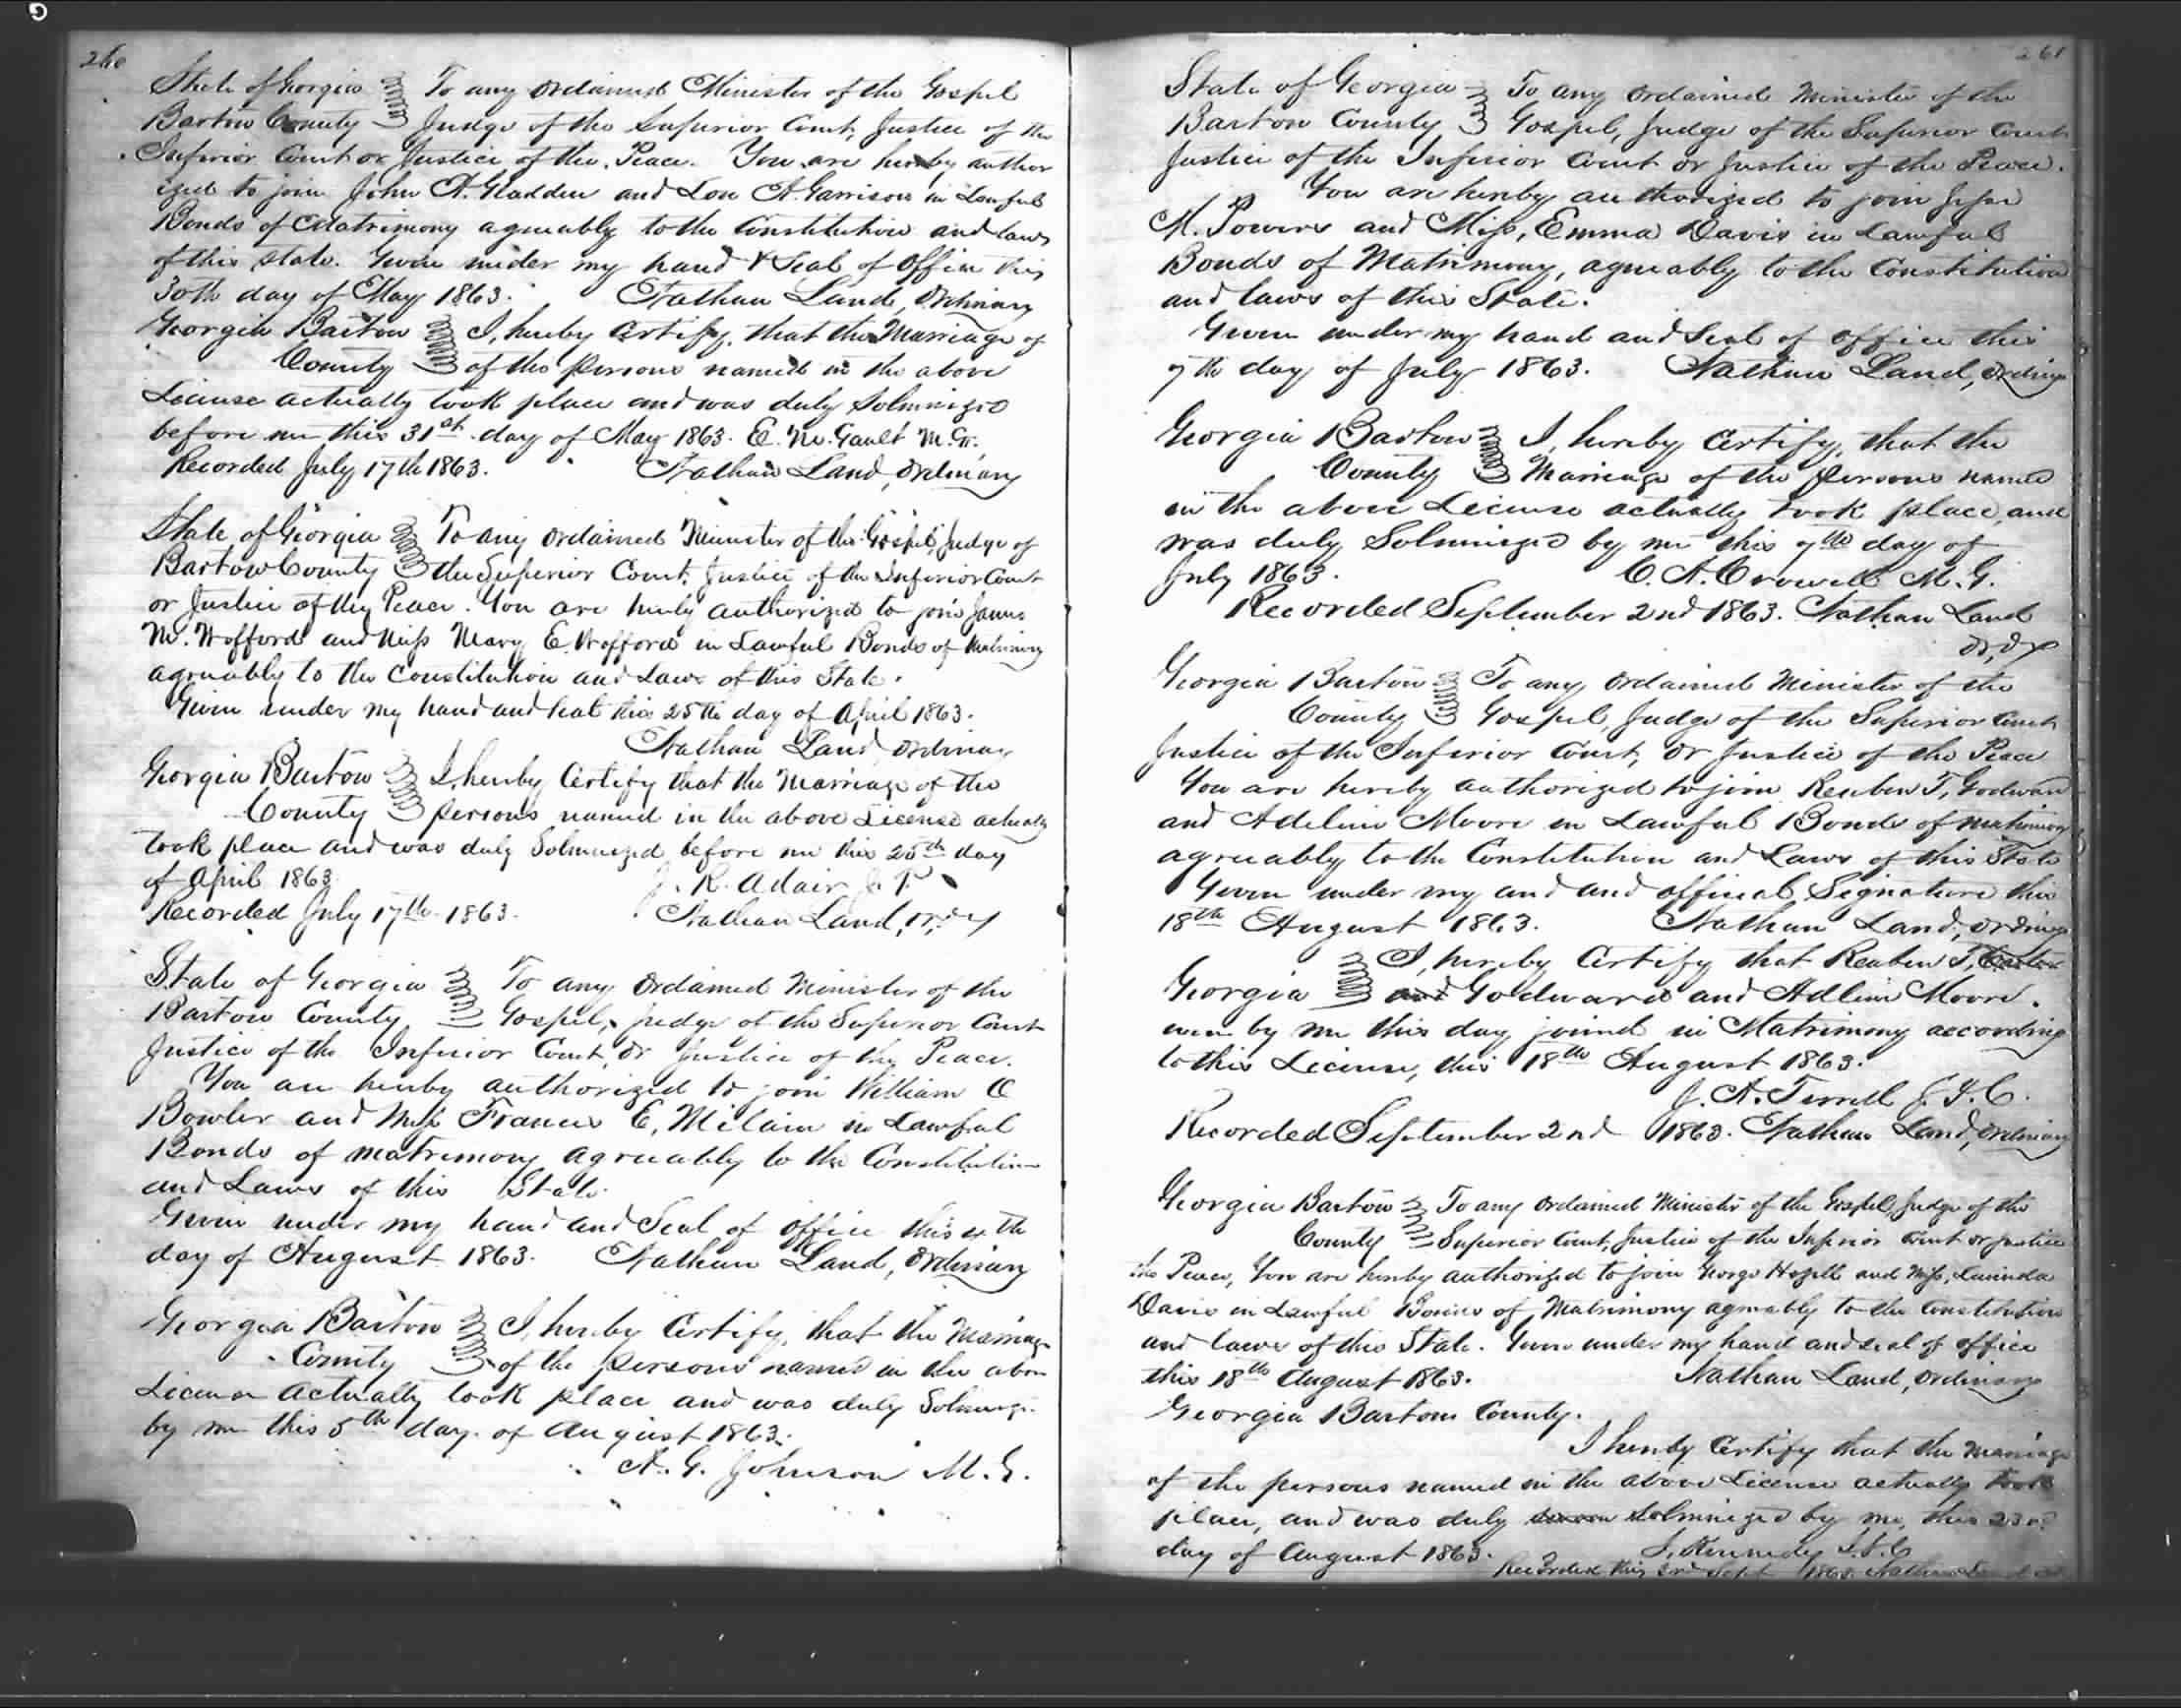 260
State of Georgia To any ordained Minister of the Gospel
Bartow County Judge of the Superior Court, Justice of the
Inferior Court or Justice of the Peace. You are hereby author
ized to join John A. Gladden and Lou A. Garrison in Lawful
Bonds of Matrimony agreeably to the Constitution and laws
of this state. Given under my hand & Seal of Office this
30th day of May 1863. Nathan Land, Ordinary
Georgia Bartow I, hereby Certify, that the Marriage of
County of the Persons named in the above
License actually took place and was duly Solmnized
before me this 31st day of May 1863. E. M. Gault M. G.
Recorded July 17th 1863. Nathan Land, Ordinary
State of Georgia To any ordained Minister of the Gospel, Judge of
Bartow County the Superior Court, Justice of the Inferior Court
or Justice of the Peace. You are hereby authorized to join James
W. Wofford and Miss Mary E. Wofford in Lawful Bonds of Matrimony
agreeably to the Constitution and Laws of this State.
Given under my hand and seal this 25th day of April 1863.
Nathan Land Ordinary
Georgia Bartow I, hereby Certify that the Marriage of the
County persons named in the above License actually
took place and was duly Solmnized before me this 25th day
of April 1863 J. R. Adair J. P.
Recorded July 17th 1863. Nathan Land, Ordy
State of Georgia To any Ordained Minister of the
Bartow County Gospel, Judge of the Superior Court
Justice of the Inferior Court, or Justice of the Peace.
You are hereby authorized to join William C
Bowler and Miss Frances E. Milam in Lawful
Bonds of matrimony agreeably to the Constitution
and Laws of this State.
Given under my hand and Seal of office this 4th
day of August 1863. Nathan Land, Ordinary
Georgia Bartow I, hereby Certify, that the Marriage
County of the persons named in the above
License actually took place and was duly
by me this 5th day of August 1863.
A. G. Johnson M. G.
261
State of Georgia To any Ordained Minister of the
Bartow County Gospel, Judge of the Superior Court
Justice of the Inferior Court or Justice of the Peace.
You are hereby authorized to join Jesse
M. Powers and Miss, Emma Davis in Lawful
Bonds of Matrimony, agreeably to the Constitution
and laws of this State.
Given under my hand and Seal of office this
7th day of July 1863. Nathan Land, Ordinary
Georgia Bartow I, hereby Certify, that the
County Marriage of the Persons named
in the above License actually took place, and
was duly Solmnized by me this 7th day of
July 1863. C. A. Crowell M. G.
Recorded September 2nd 1863. Nathan Land
Ordy
Georgia Bartow To any Ordained Minister of the
County Gospel, Judge of the Superior Court
Justice of the Inferior Court, or Justice of the Peace
You are hereby authorized to join Reuben T, Godward
and Adeline Moore in Lawful Bonds of matrimony
agreeably to the Constitution and Laws of this State
Given under my and and official Signature this
18th August 1863. Nathan Land, Ordinary
I, hereby Certify that Reuben T,
Georgia and Godward and Adline Moore.
were by me this day joined in Matrimony according
to this License, this 18th August 1863.
J. A. Terrell J. I. C.
Recorded September 2nd 1863. Nathan Land, Ordinary
Georgia Bartow To any Ordained Minister of the Gospel, Judge of the
County Superior Court, Justice of the Inferior Court or Justice
the Peace, You are hereby authorized to join George Hazell and Miss, Lucinda
Davis in Lawful Bonds of Matrimony agreeably to the Constitution
and laws of this State. Given under my hand and seal of office
this 18th August 1863. Nathan Land, Ordinary
Georgia Bartow County.
I hereby Certify that the marriage
of the persons named in the above License actually took
place, and was duly Solmnized by me, this 23rd
day of August 1863. J. Kennedy J. I. C
Recorded this Sept 1863. Nathan Land